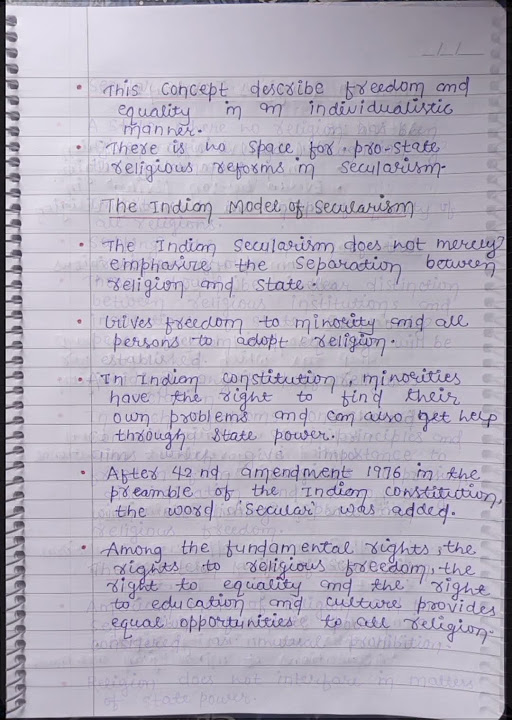 _/_/__
• This concept describe freedom and
equality in an individualistic
manner.
• There is no space for pro-state
religious reforms in Secularism.
The Indian Model of Secularism
• The Indian Secularism does not merely
emphasize the Separation between
religion and state.
• Gives freedom to minority and all
persons to adopt religion.
• In Indian constitution, minorities
have the right to find their
own problems and can also get help
through state power.
• After 42nd amendment 1976 in the
preamble of the Indian constitution,
the word 'Secular' was added.
• Among the fundamental rights, the
rights to religious freedom, the
right to equality and the right
to education and culture provides
equal opportunities to all religion.
• Religion does not interfere in matters
of state power.